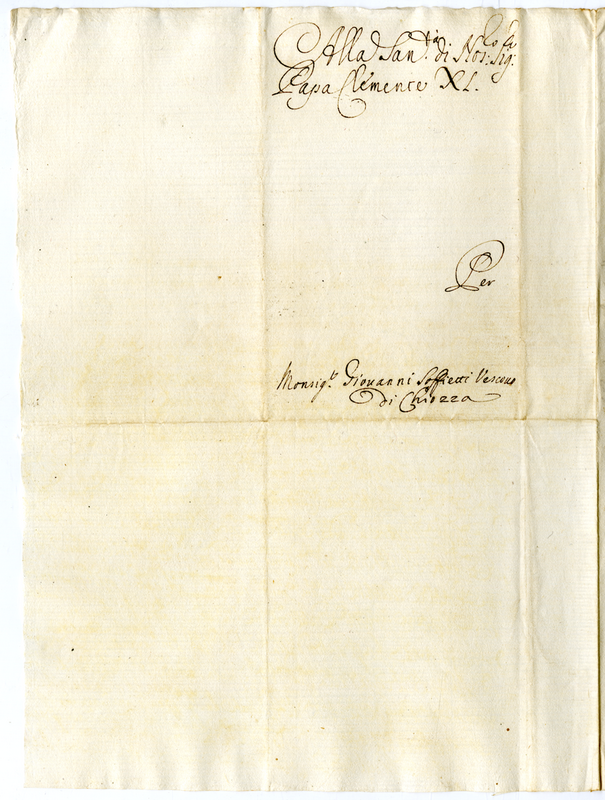 Alla San.tià di Nos: Sig:
Papa Clemente XI.
Per
Monsig.r Giovanni Soffietti Vescovo
di Chiozza